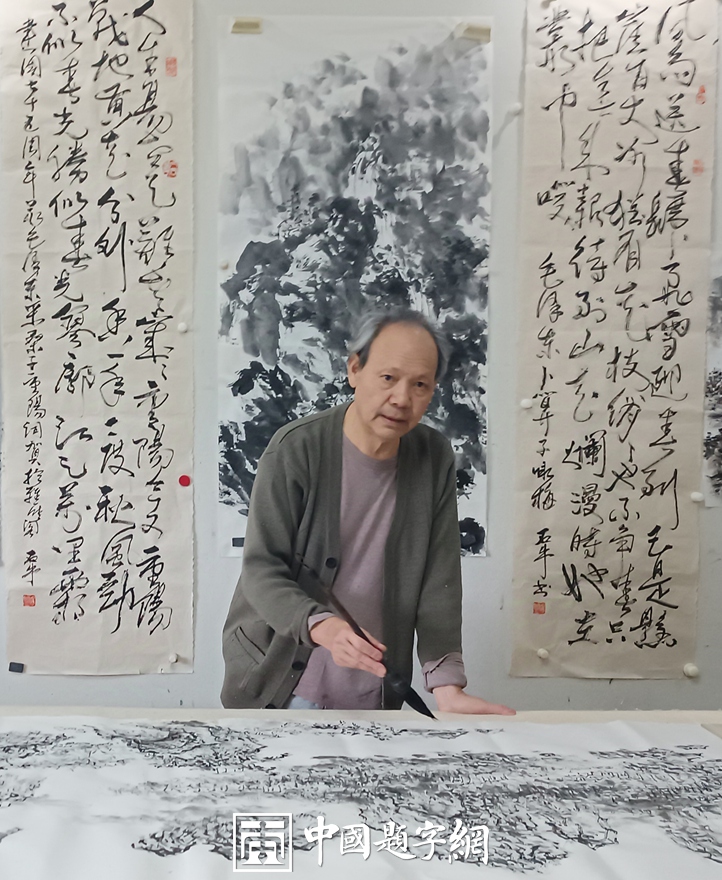 风雨送春歸飞雪迎春到已是懸
崖百丈冰犹有花枝俏俏也不争春只
把春来報待到山花爛漫時她在
叢中咲 毛泽东卜算子咏梅
人生易老天難老歲歲重陽今又重陽
戰地黄花分外香一年一度秋风劲
不似春光勝似春光寥廓江天萬里霜
建国七十五周年录毛泽东采桑子重陽词贺
中國題字網